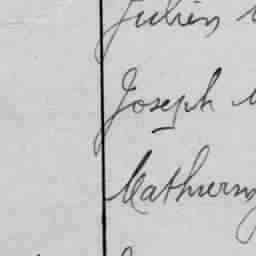 Julien
Joseph
Mathurin